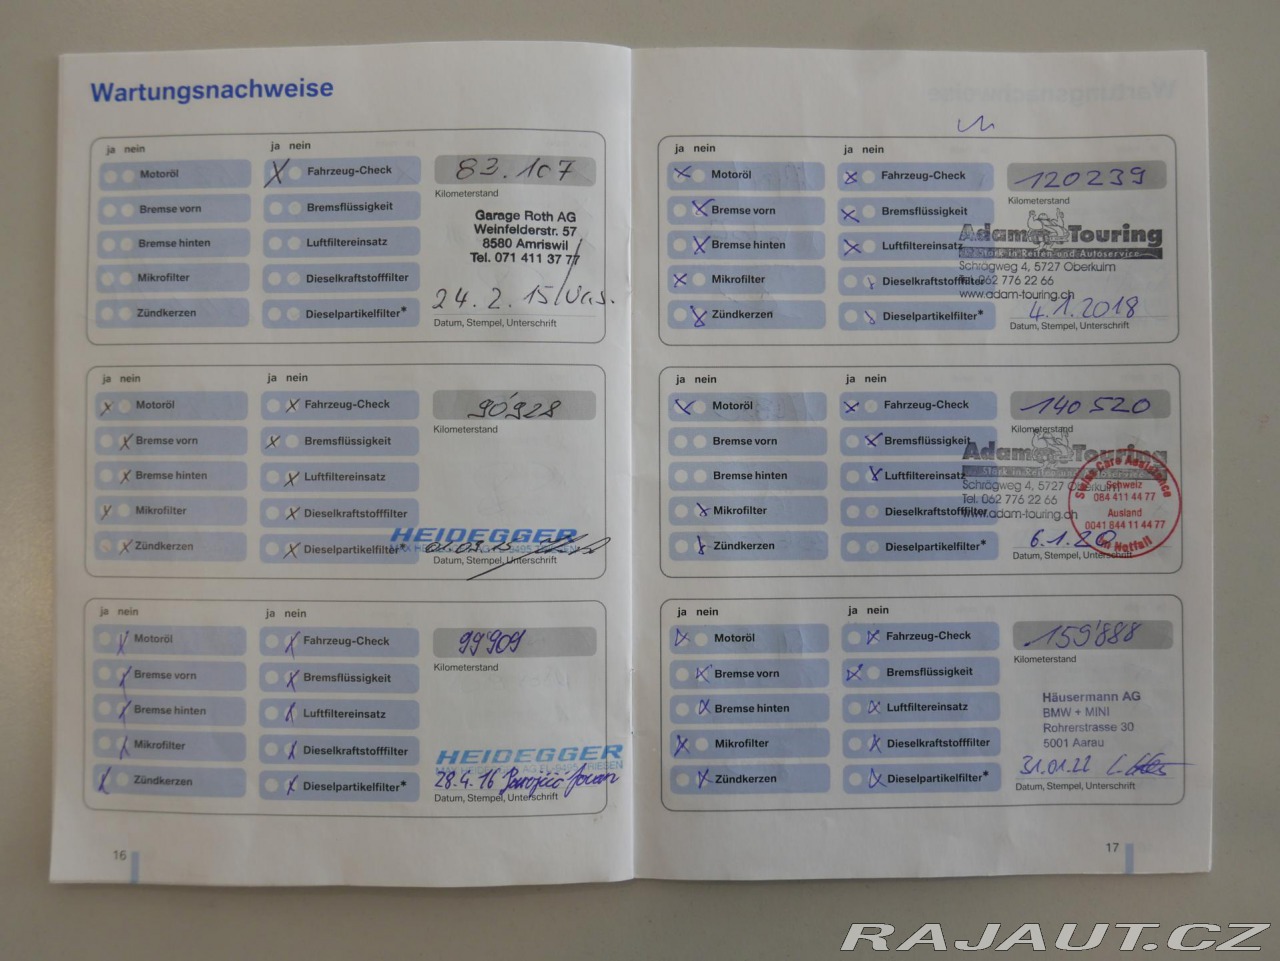 Wartungsnachweise
ja nein
ja nein
Motoröl
Fahrzeug-Check
83.107
Kilometerstand
Bremse vorn
Bremsflüssigkeit
Garage Roth AG
Weinfelderstr. 57
8580 Amriswil
Tel. 071 411 37 77
Bremse hinten
Luftfiltereinsatz
Mikrofilter
Dieselkraftstofffilter
24.2.15
Zündkerzen
Dieselpartikelfilter*
Datum, Stempel, Unterschrift
ja nein
ja nein
Motoröl
Fahrzeug-Check
90'928
Kilometerstand
Bremse vorn
Bremsflüssigkeit
Bremse hinten
Luftfiltereinsatz
Mikrofilter
Dieselkraftstofffilter
HEIDEGGER
Zündkerzen
Dieselpartikelfilter*
Datum, Stempel, Unterschrift
ja nein
ja nein
Motoröl
Fahrzeug-Check
99'909
Kilometerstand
Bremse vorn
Bremsflüssigkeit
Bremse hinten
Luftfiltereinsatz
Mikrofilter
Dieselkraftstofffilter
HEIDEGGER
Zündkerzen
Dieselpartikelfilter*
28.4.16
Datum, Stempel, Unterschrift
16
ja nein
ja nein
Motoröl
Fahrzeug-Check
120239
Kilometerstand
Bremse vorn
Bremsflüssigkeit
Adam Touring
Stark in Reifen und Autoservice
Bremse hinten
Luftfiltereinsatz
Schrägweg 4, 5727 Oberkulm
Mikrofilter
Dieselkraftstofffilter
Tel. 062 776 22 66
www.adam-touring.ch
4.1.2018
Zündkerzen
Dieselpartikelfilter*
Datum, Stempel, Unterschrift
ja nein
ja nein
Motoröl
Fahrzeug-Check
140520
Kilometerstand
Bremse vorn
Bremsflüssigkeit
Adam Touring
Stark in Reifen und Autoservice
Bremse hinten
Luftfiltereinsatz
Schrägweg 4, 5727 Oberkulm
Tel. 062 776 22 66
Mikrofilter
Dieselkraftstofffilter
www.adam-touring.ch
Swiss Care Assistance
Schweiz
084 411 44 77
Ausland
0041 844 11 44 77
im Notfall
6.1.20
Zündkerzen
Dieselpartikelfilter*
Datum, Stempel, Unterschrift
ja nein
ja nein
Motoröl
Fahrzeug-Check
159'888
Kilometerstand
Bremse vorn
Bremsflüssigkeit
Häusermann AG
BMW + MINI
Rohrerstrasse 30
5001 Aarau
Bremse hinten
Luftfiltereinsatz
Mikrofilter
Dieselkraftstofffilter
31.01.22
Zündkerzen
Dieselpartikelfilter*
Datum, Stempel, Unterschrift
17
RAJAUT.CZ